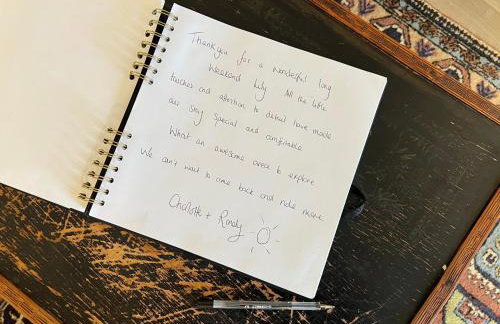 Thank you for a wonderful long
weekend July. All the little
touches and attention to detail have made
our stay special and comfortable
What an awesome area to explore
We can't wait to come back and ride more.
Charlotte + Randy